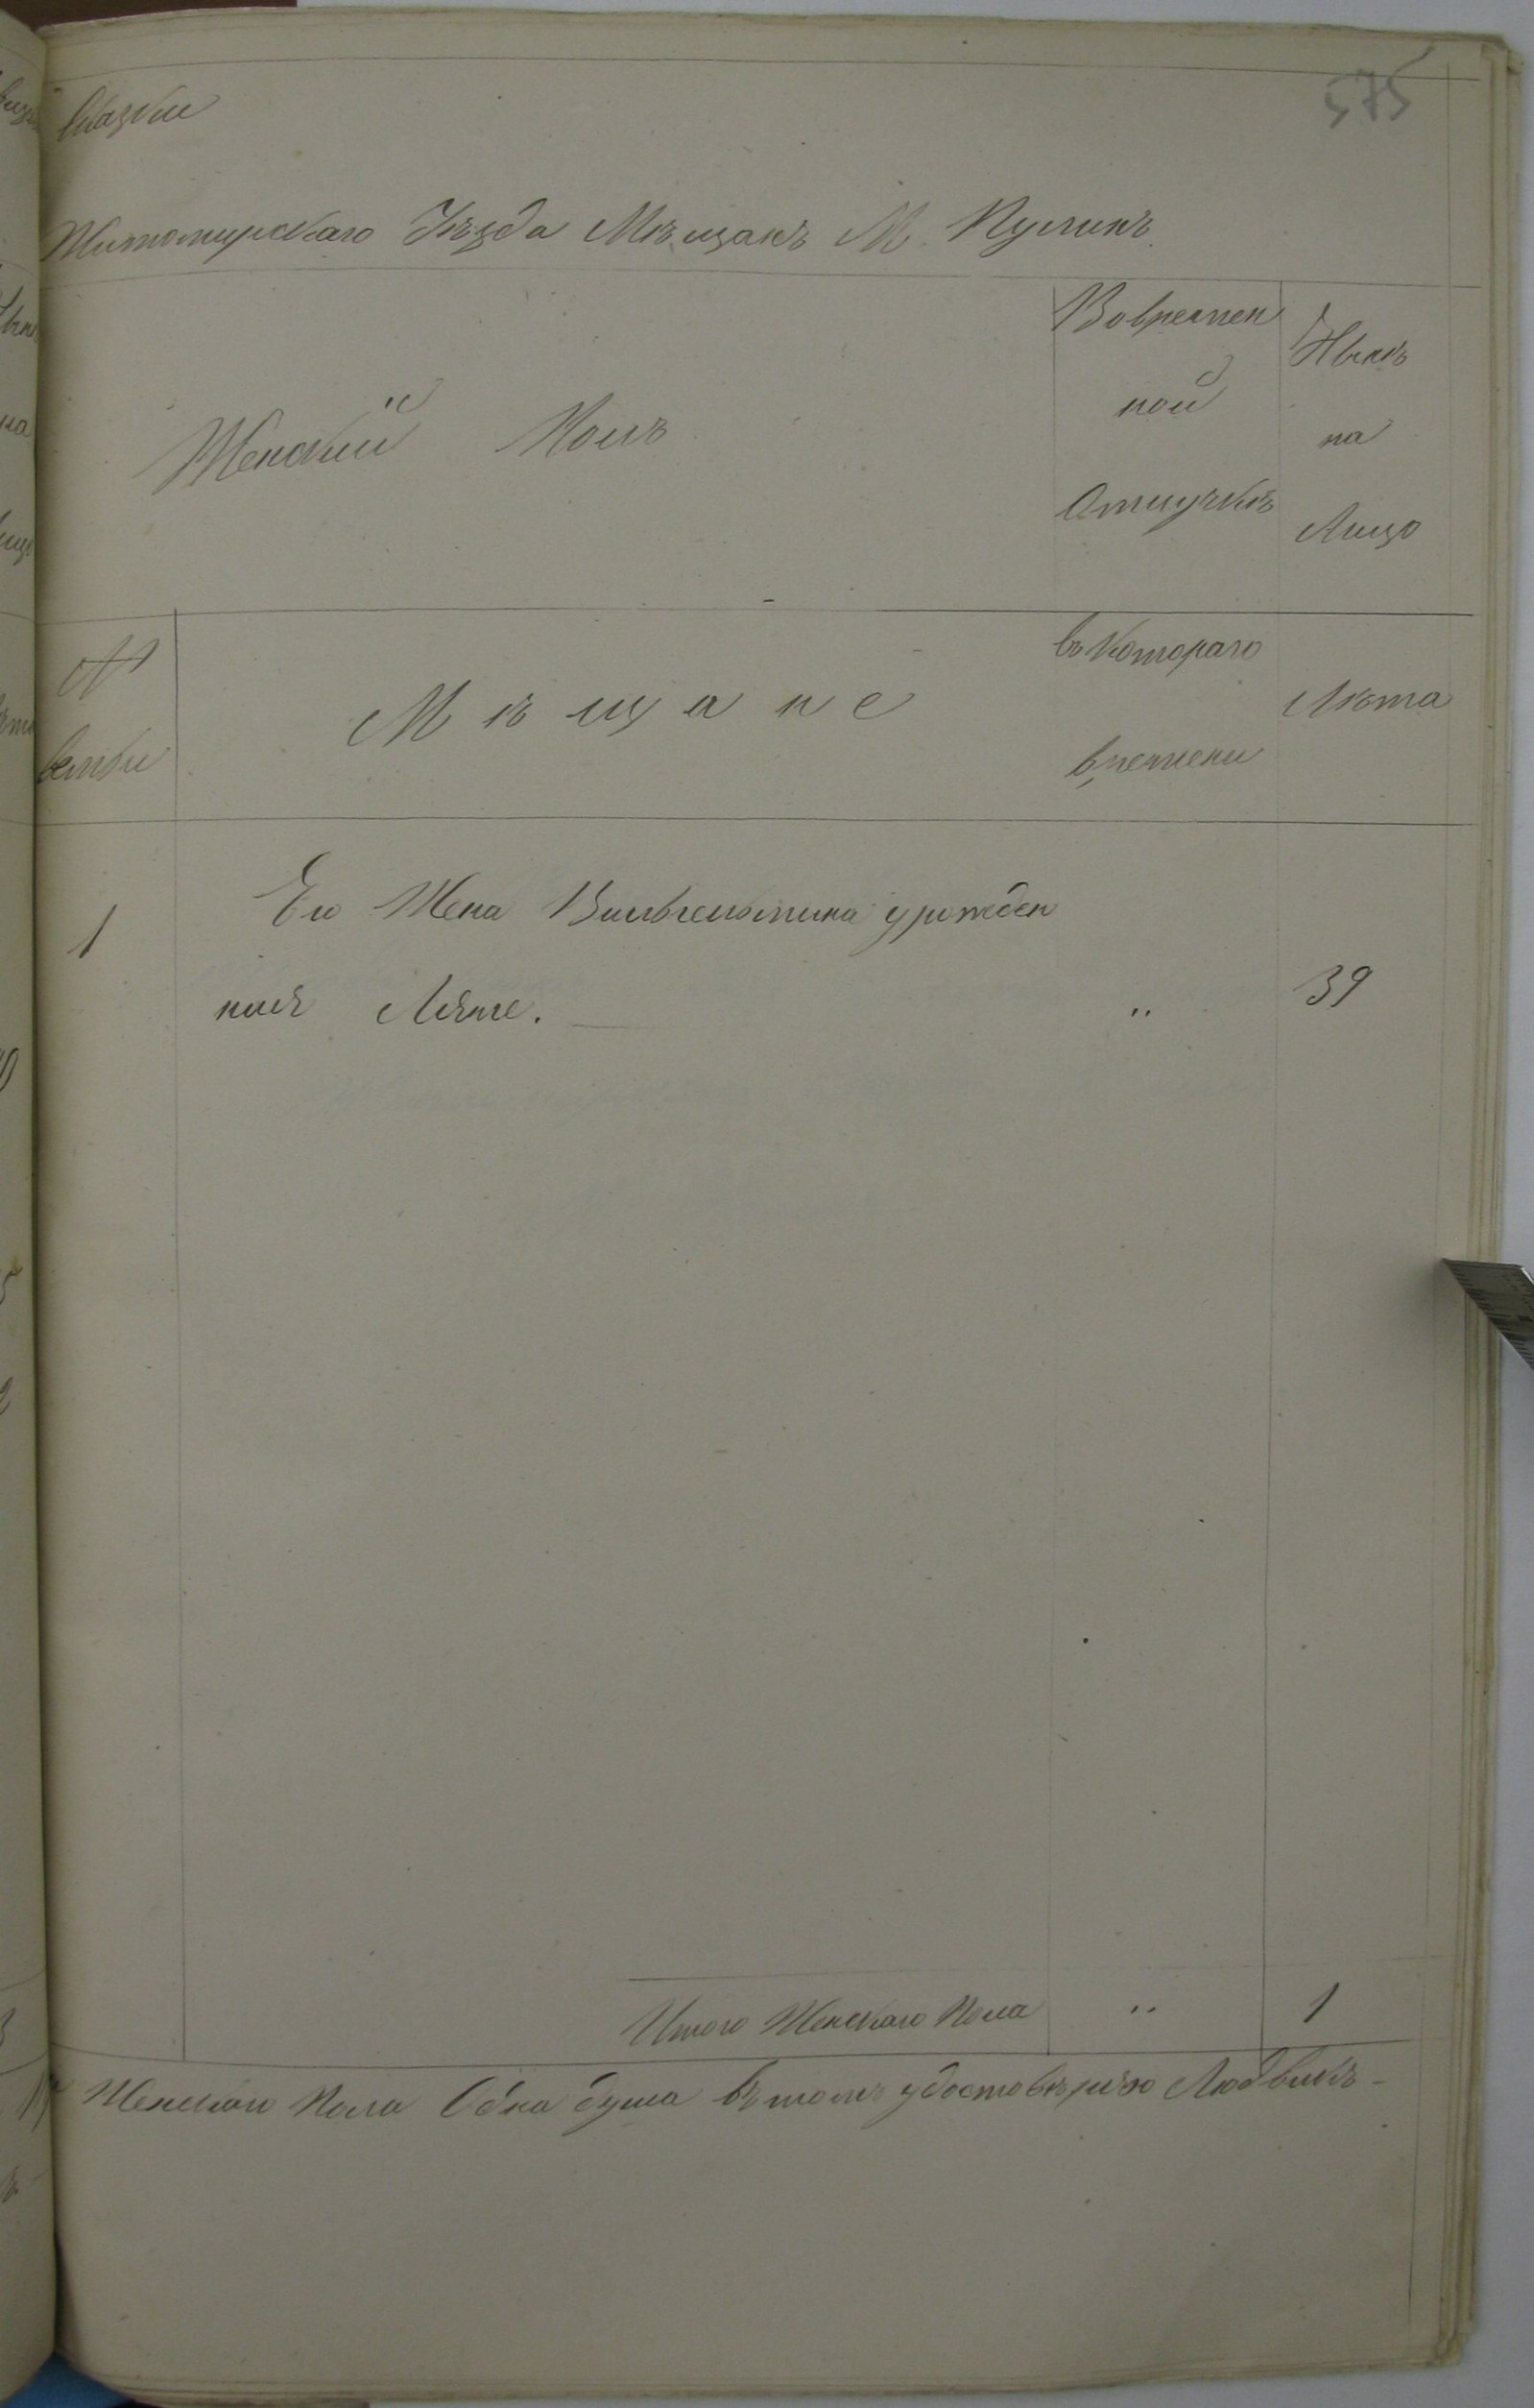 575
сказки
Житомирскаго Уѣзда Мѣщанъ М. Пулинъ.
Женскій Полъ
Вовремен
ной
Отлучкѣ
Нынѣ
на
Лицо
№
семьи
Мѣщане
съ Котораго
времени
Лѣта
1
Его Жена Вильгельмина урожден
ная .. 39
Итого Женскаго Пола .. 1
Женскаго Пола Одна душа вътомъ удостовѣряю Людвикъ-